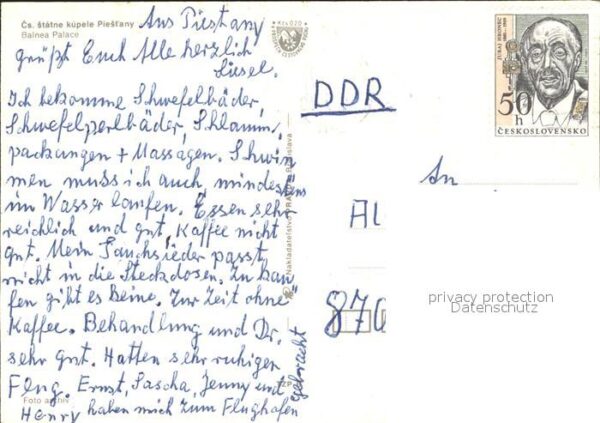 Čs. štátne kúpele Piešťany
Balnea Palace
Aus Piestany
grüßt Euch Alle herzlich
Liesel.
Ich bekomme Schwefelbäder,
Schwefelperlbäder, Schlamm,
packungen + Massagen. Schwim
men muss ich auch, mindestens
im Wasser laufen. Essen sehr
reichlich und gut, Kaffee nicht
gut. Mein Tauchsieder passt
nicht in die Steckdosen. Zu kau-
fen gibt es keine. Zur Zeit ohne
Kaffee. Behandlung und Dr.
sehr gut. Hatten sehr ruhigen
Flug. Ernst, Sascha, Jenny und
Henry haben mich zum Flughafen
gebracht
Foto archív
Kčs 0,20
Nakladateľstvo
DDR
JURAJ HRONEC
50 h
ČESKOSLOVENSKO
An
Al
870
privacy protection
Datenschutz